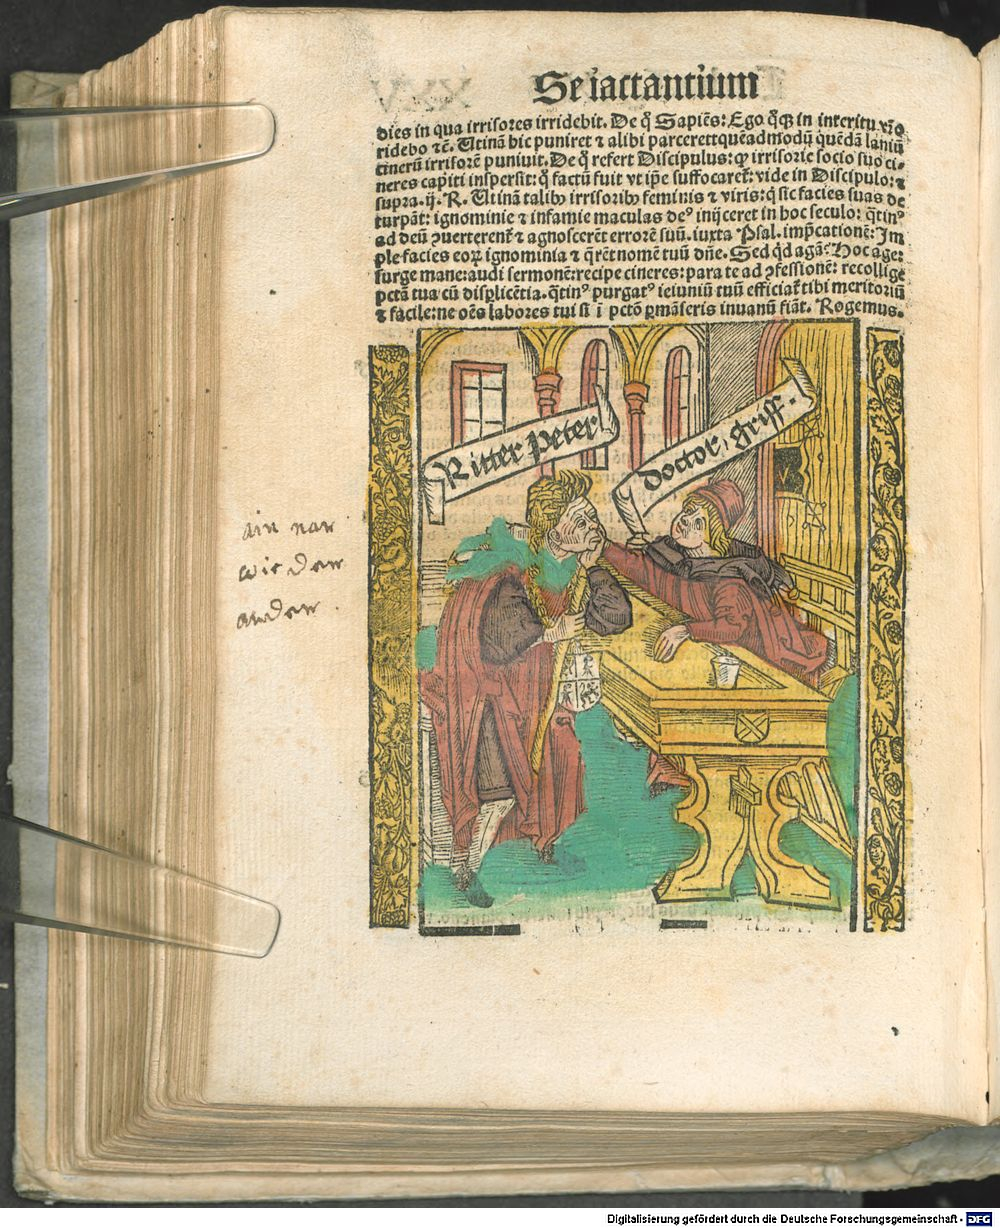 Se iactantium
dies in qua irrisores irridebit. De q̃ Sapiẽs: Ego q̃qꝫ in interitu vr̃o
ridebo ⁊c̃. Utinã hic puniret ⁊ alibi parceret quẽadmodũ quẽdã laniũ
cinerũ irrisorẽ puniuit. De q̃ refert Discipulus: ꝙ irrisorie socio suo ci⸗
neres capiti inspersit: q̃ factũ fuit vt ip̃e suffocaret̃: vide in Discipulo: ⁊
supra. ij. R. Utinã talibꝰ irrisoribꝰ feminis ⁊ viris: q̃ sic facies suas de
turpãt: ignominie ⁊ infamie maculas deꝰ inijceret in hoc seculo: q̃tinꝰ
ad deũ ꝯuerterent̃ ⁊ agnoscerẽt errorẽ suũ. iuxta Psal. imp̃cationẽ: Im
ple facies eoꝝ ignominia ⁊ q̃rẽt nomẽ tuũ dñe. Sed qd̃ agã: Hoc age:
surge mane: audi sermonẽ: recipe cineres: para te ad ꝯfessionẽ: recollige
pctã tua cũ displicẽtia. q̃tinꝰ purgatꝰ ieiuniũ tuũ efficiat̃ tibi meritoriũ
⁊ facile: ne oẽs labores tui si ĩ pctõ ꝑmãseris in uanũ fiãt. Rogemus.
Ritter Peter
doctor, griff.
ain nar
wie der
ander.
Digitalisierung gefördert durch die Deutsche Forschungsgemeinschaft - DFG